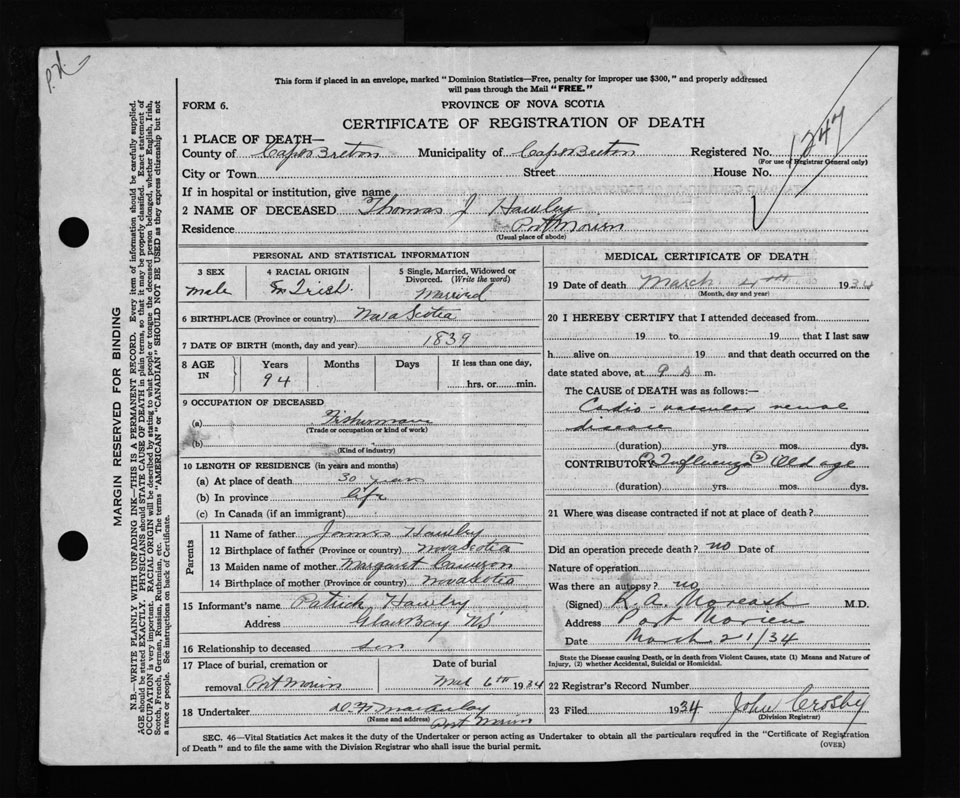 P.X.
This form if placed in an envelope, marked "Dominion Statistics—Free, penalty for improper use $300," and properly addressed
will pass through the Mail "FREE."
FORM 6.
PROVINCE OF NOVA SCOTIA
CERTIFICATE OF REGISTRATION OF DEATH
1247
MARGIN RESERVED FOR BINDING
N.B.—WRITE PLAINLY WITH UNFADING INK—THIS IS A PERMANENT RECORD. Every item of information should be carefully supplied.
AGE should be stated EXACTLY. PHYSICIANS should STATE CAUSE OF DEATH in plain terms, so that it may be properly classified. Exact statement of
OCCUPATION is very important. RACIAL ORIGIN will be described by stating to what people or tongue the deceased person belonged, whether English, Irish,
Scotch, French, German, Russian, Ruthenian, etc. The terms "AMERICAN" or "CANADIAN" SHOULD NOT BE USED as they express citizenship but not
a race or people. See instructions on back of Certificate.
1 PLACE OF DEATH—
County of Cape Breton Municipality of Cape Breton Registered No.
(For use of Registrar General only)
City or Town Street House No.
If in hospital or institution, give name
2 NAME OF DECEASED Thomas J Hawley
Residence Port Morien
(Usual place of abode)
PERSONAL AND STATISTICAL INFORMATION
3 SEX
male
4 RACIAL ORIGIN
Irish
5 Single, Married, Widowed or
Divorced. (Write the word)
Married
6 BIRTHPLACE (Province or country) Nova Scotia
7 DATE OF BIRTH (month, day and year) 1839
8 AGE
IN
Years
94
Months
Days
If less than one day,
hrs. or min.
9 OCCUPATION OF DECEASED
(a) Fisherman
(Trade or occupation or kind of work)
(b)
(Kind of industry)
10 LENGTH OF RESIDENCE (in years and months)
(a) At place of death 30 years
(b) In province life
(c) In Canada (if an immigrant)
Parents
11 Name of father James Hawley
12 Birthplace of father (Province or country) Nova Scotia
13 Maiden name of mother Margaret Cameron
14 Birthplace of mother (Province or country) Nova Scotia
15 Informant's name Patrick Hawley
Address Glace Bay NS
16 Relationship to deceased son
17 Place of burial, cremation or
removal Port Morien
Date of burial
Mch 6th 1934
18 Undertaker
(Name and address)
Port Morien
MEDICAL CERTIFICATE OF DEATH
19 Date of death March 4th 1934
(Month, day and year)
20 I HEREBY CERTIFY that I attended deceased from
19 to 19, that I last saw
h alive on 19 and that death occurred on the
date stated above, at 9 A m.
The CAUSE of DEATH was as follows:—
Cadio-vascular renal
disease
(duration) yrs. mos. dys.
CONTRIBUTORY (1) Influenza (2) Old age
(duration) yrs. mos. dys.
21 Where was disease contracted if not at place of death?
Did an operation precede death? no Date of
Nature of operation
Was there an autopsy? no
(Signed) K. A. M.D.
Address Port Morien
Date March 21/34
State the Disease causing Death, or in death from Violent Causes, state (1) Means and Nature of
Injury, (2) whether Accidental, Suicidal or Homicidal.
22 Registrar's Record Number
23 Filed 1934 John Crosby
(Division Registrar)
SEC. 46—Vital Statistics Act makes it the duty of the Undertaker or person acting as Undertaker to obtain all the particulars required in the "Certificate of Registration
of Death" and to file the same with the Division Registrar who shall issue the burial permit.
(OVER)